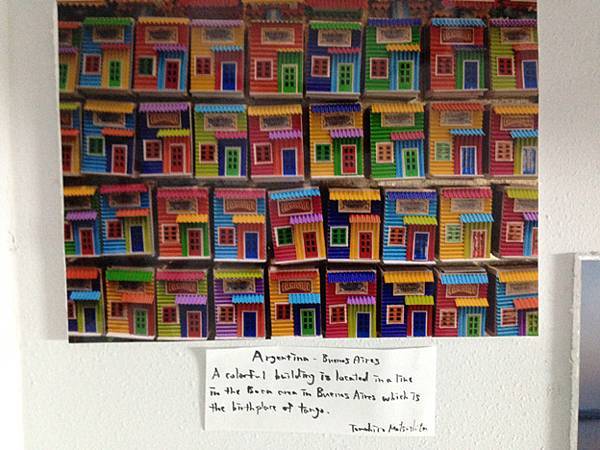 Argentina - Buenos Aires
A colorful building is located in a line
in the Boca area in Buenos Aires which is
the birthplace of tango.